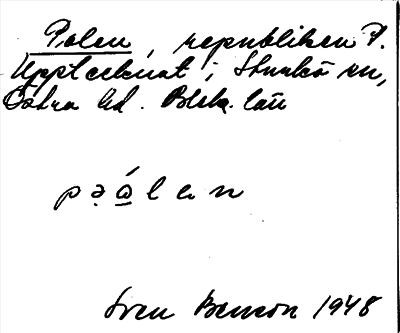 Polen, republiken P.
Upptecknat i Sturkö sn,
Östra hd. Blek. län
pə̣å̱len
Sven Benson 1948